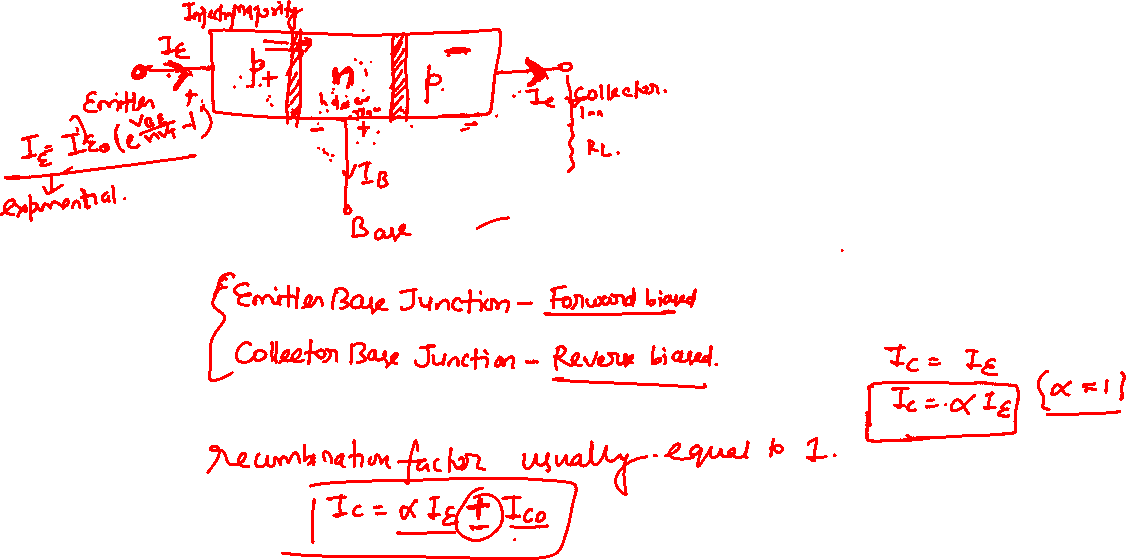 Injecting Majority
I_E
p +
n
p -
holes
- +
-
I_C
Collector.
1mA
R_L.
Emitter +
I_E = I_E0 (e^(V_BE/ηV_T) - 1)
exponential.
I_B
Base
Emitter Base Junction - Forward biased
Collector Base Junction - Reverse biased.
I_C = I_E
I_C = α I_E {α ≈ 1}
recombination factor usually equal to 1.
I_C = α I_E + I_CO